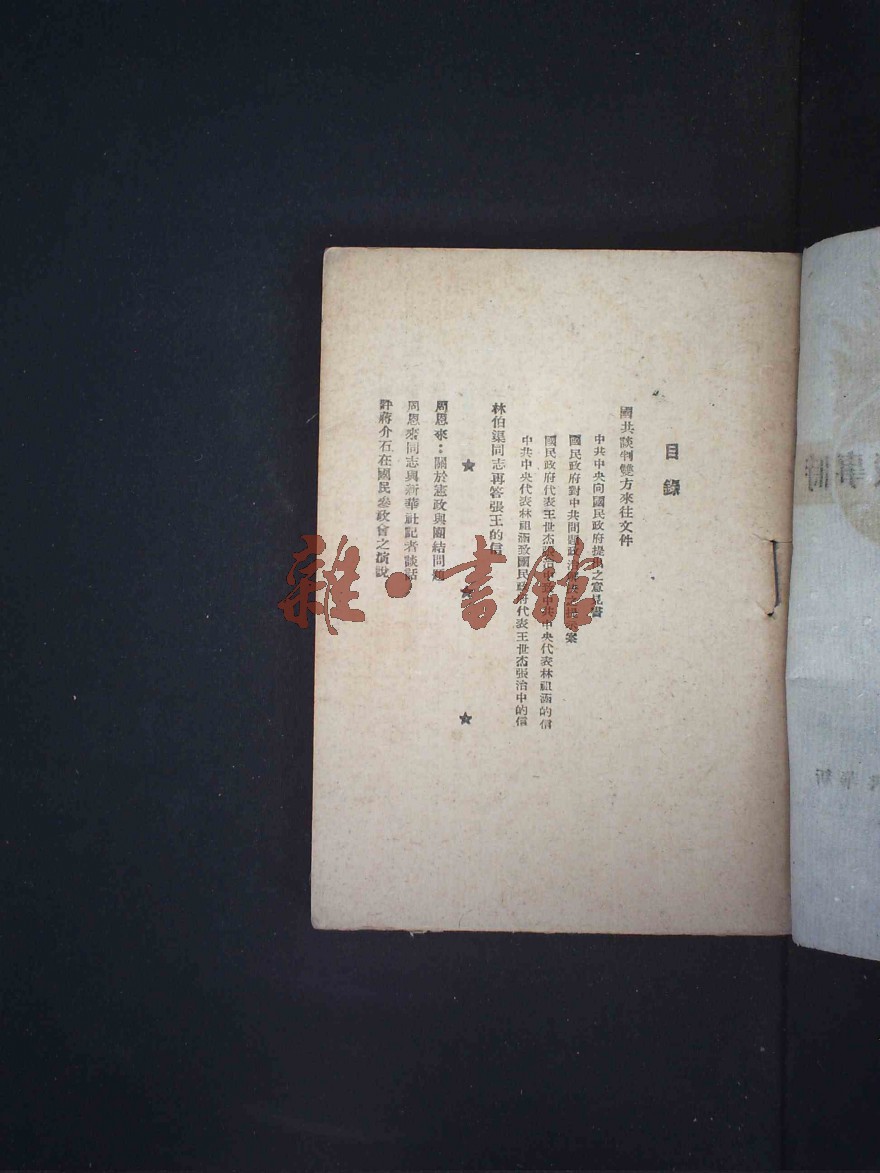 目錄
國共談判雙方來往文件
中共中央向國民政府提出之意見書
國民政府對中共問題政治 案
國民政府代表王世杰張治中 中共中央代表林祖涵的信
中共中央代表林祖涵致國民政府代表王世杰張治中的信
林伯渠同志再答張王的信
★ ★ ★
周恩來：關於憲政與團結問題
周恩來同志與新華社記者談話
評蔣介石在國民參政會之演說
雜·書館
事時
華新